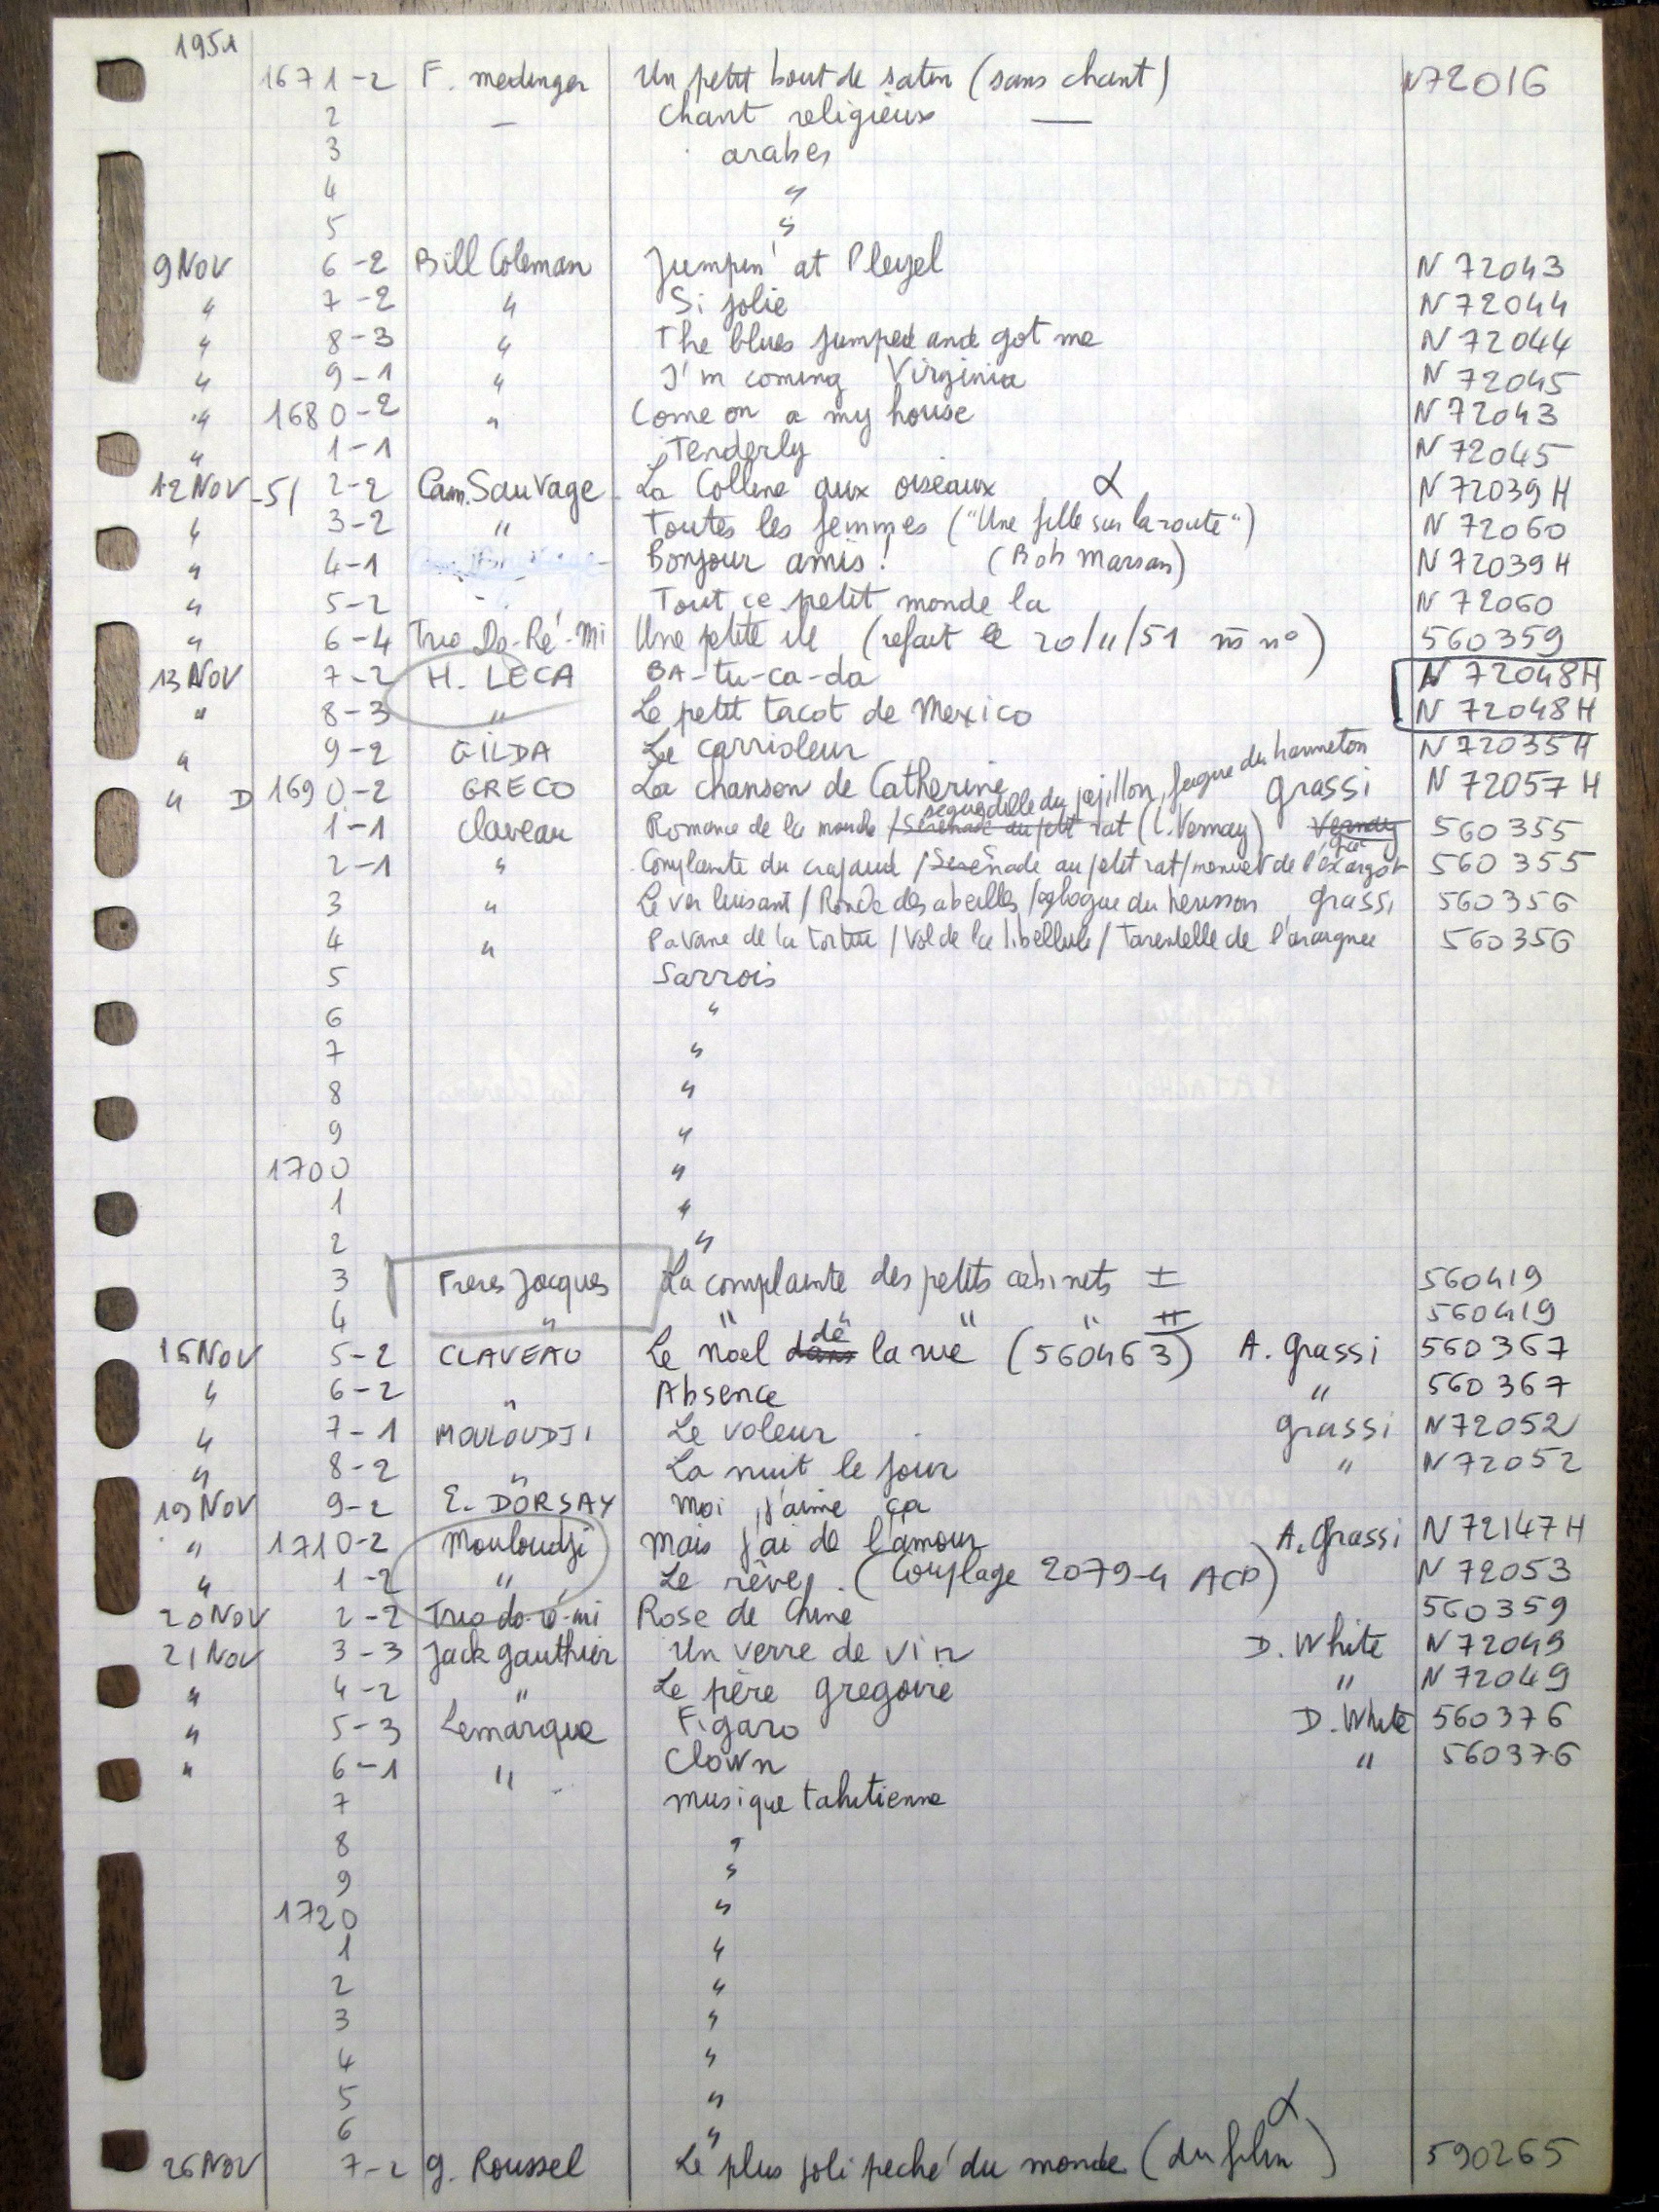 1951
1671-2 F. Medinger Un petit bout de satin (sans chant) N72016
2 — Chant religieux —
3 arabes
4 "
5 "
9 NOV 6-2 Bill Coleman Jumpin' at Pleyel N 72043
" 7-2 " Si jolie N 72044
" 8-3 " The blues jumped and got me N 72044
" 9-1 " I'm coming Virginia N 72045
" 1680-2 " Come on a my house N 72043
" 1-1 Tenderly N 72045
12 NOV-51 2-2 Cam. Sauvage La Colline aux oiseaux α N 72039 H
" 3-2 " Toutes les femmes ("Une fille sur la route") N 72060
" 4-1 Bonjour amis! (Bob Marsan) N 72039 H
" 5-2 Tout ce petit monde la N 72060
" 6-4 Trio Do-Ré-Mi Une petite ile (refait le 20/11/51 m̄ n°) 560359
13 NOV 7-2 H. LECA BA-tu-ca-da N 72048H
" 8-3 " Le petit tacot de Mexico N 72048H
" 9-2 GILDA Le carrioleur N 72035 H
" D 1690-2 GRECO La chanson de Catherine Grassi N 72057 H
seguedille du papillon, fugue du hanneton
1-1 Claveau Romance de la mouche / Sérénade au petit rat (C. Vernay) Vernay 560355
2-1 " Complainte du crapaud / Serénade au petit rat/menuet de l'escargot 560 355
3 " Le ver luisant / Ronde des abeilles / eglogue du herisson Grassi 560356
4 " Pavane de la tortue / Vol de la libellule / Tarentelle de l'araignee 560356
5 Sarrois
6 "
7 "
8 "
9 "
1700 "
1 "
2 "
3 Freres Jacques La complainte des petits cabinets I 560419
4 " " " " II 560419
15 NOV 5-2 CLAVEAU Le noel dans de la rue (560463) A. Grassi 560367
" 6-2 " Absence " 560367
" 7-1 MOULOUDJI Le voleur Grassi N72052
" 8-2 " La nuit le jour " N72052
19 NOV 9-2 E. DORSAY Moi j'aime ça
" 1710-2 Mouloudji Mais j'ai de l'amour A. Grassi N 72147 H
" 1-2 " Le rêve. (Couplage 2079-4 ACP) N 72053
20 NOV 2-2 Trio do-ré-mi Rose de Chine 560359
21 NOV 3-3 Jack Gauthier Un verre de vin D. White N 72049
" 4-2 " Le père Gregoire " N 72049
" 5-3 Lemarque Figaro D. White 560376
" 6-1 " Clown " 560376
7 musique tahitienne
8 "
9 "
1720 "
1 "
2 "
3 "
4 "
5 "
6 "
26 NOV 7-2 G. Roussel Le plus joli peché du monde (du film α) 590265